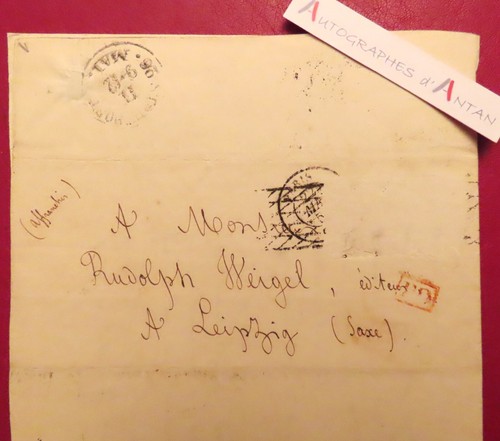 AUTOGRAPHES d'ANTAN
(affranchie)
A Mons
Rudolph Weigel, éditeur
A Leipzig (Saxe).